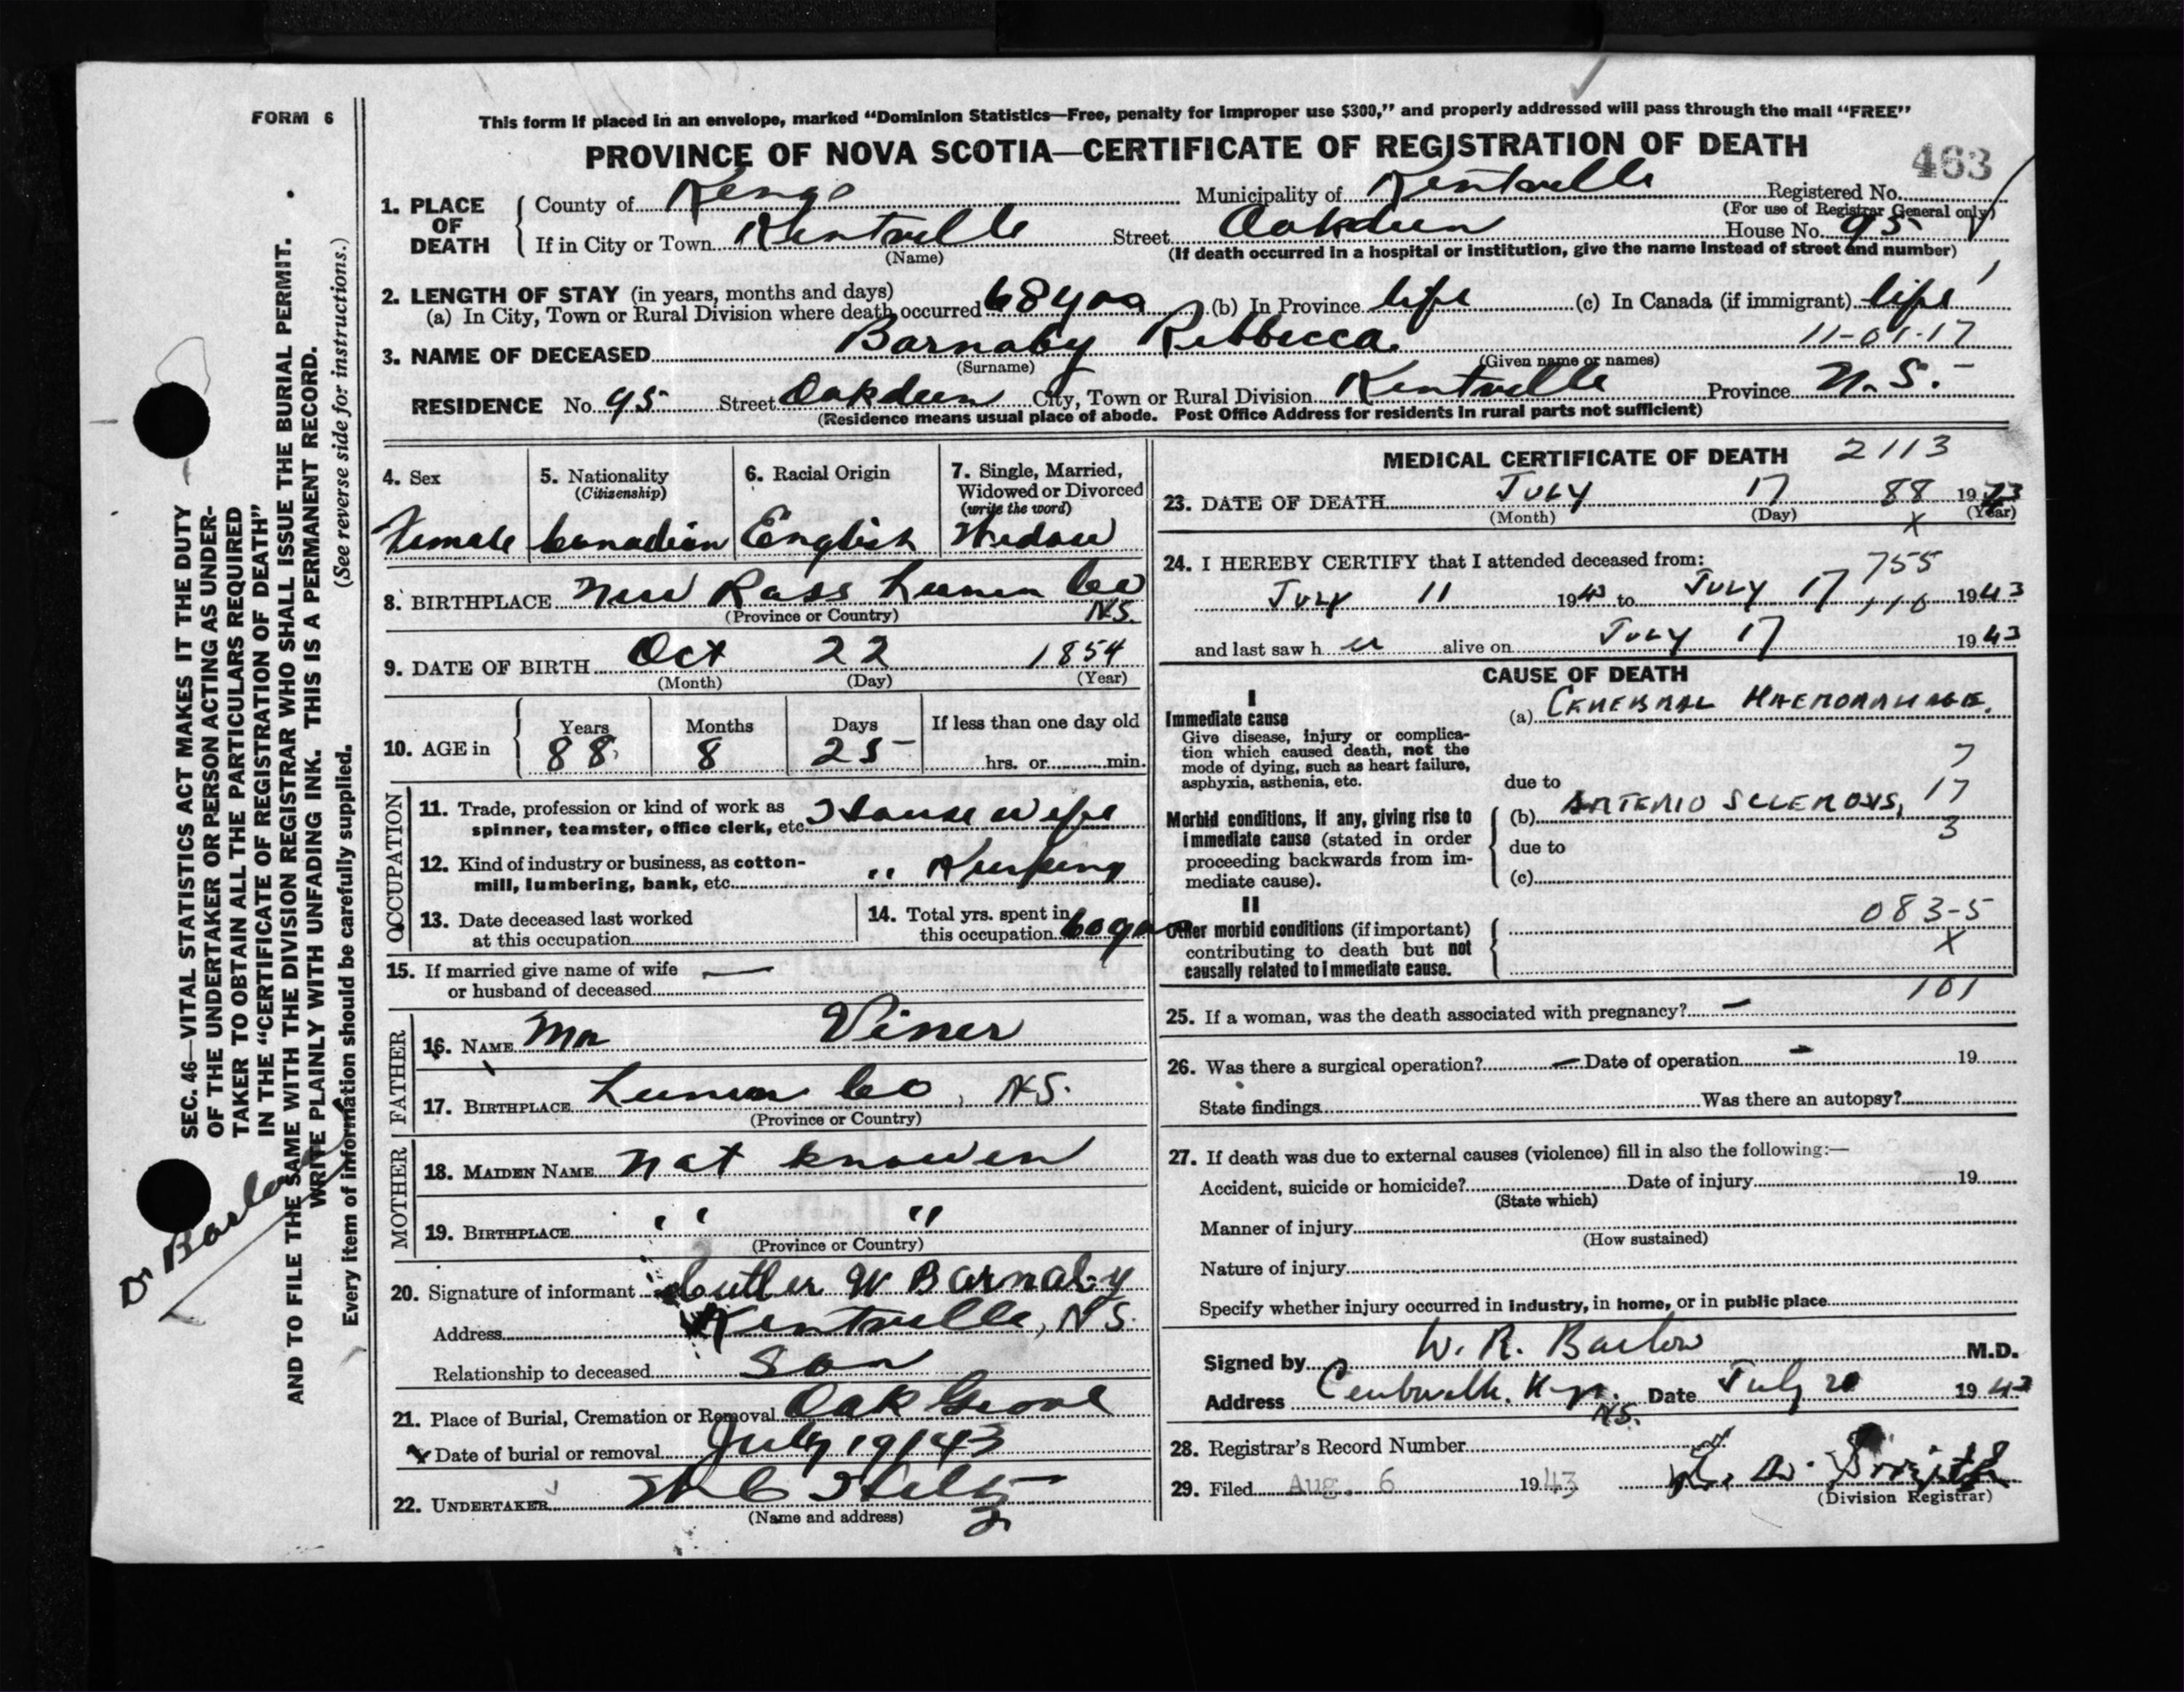 FORM 6
This form if placed in an envelope, marked "Dominion Statistics—Free, penalty for improper use $300," and properly addressed will pass through the mail "FREE"
PROVINCE OF NOVA SCOTIA—CERTIFICATE OF REGISTRATION OF DEATH
463
1. PLACE OF DEATH County of Kings Municipality of Kentville Registered No.
(For use of Registrar General only)
If in City or Town Kentville Street Oakdeen House No. 95
(Name) (If death occurred in a hospital or institution, give the name instead of street and number)
2. LENGTH OF STAY (in years, months and days)
(a) In City, Town or Rural Division where death occurred 68 yrs (b) In Province life (c) In Canada (if immigrant) life
11-01-17
3. NAME OF DECEASED Barnaby Rebbecca.
(Surname) (Given name or names)
RESIDENCE No. 95 Street Oakdeen City, Town or Rural Division Kentville Province N.S.
(Residence means usual place of abode. Post Office Address for residents in rural parts not sufficient)
4. Sex Female
5. Nationality (Citizenship) Canadian
6. Racial Origin English
7. Single, Married, Widowed or Divorced (write the word) Widow
8. BIRTHPLACE New Ross Lunen Co N.S.
(Province or Country)
9. DATE OF BIRTH Oct 22 1854
(Month) (Day) (Year)
10. AGE in Years 88 Months 8 Days 25 If less than one day old hrs. or min.
OCCUPATION
11. Trade, profession or kind of work as spinner, teamster, office clerk, etc. House wife
12. Kind of industry or business, as cotton-mill, lumbering, bank, etc. " Keeping
13. Date deceased last worked at this occupation
14. Total yrs. spent in this occupation 60 yrs
15. If married give name of wife or husband of deceased —
FATHER
16. NAME Mr Viner
17. BIRTHPLACE Lunen Co, N.S.
(Province or Country)
MOTHER
18. MAIDEN NAME not knowen
19. BIRTHPLACE " "
(Province or Country)
20. Signature of informant Cutler W Barnaby
Address Kentville, N.S.
Relationship to deceased Son
21. Place of Burial, Cremation or Removal Oak Grove
Date of burial or removal July 19/43
22. UNDERTAKER
(Name and address)
MEDICAL CERTIFICATE OF DEATH 2113
23. DATE OF DEATH JULY 17 88 1943
(Month) (Day) (Year)
X
24. I HEREBY CERTIFY that I attended deceased from:
755
JULY 11 1943 to JULY 17 1943
116
and last saw h er alive on JULY 17 1943
CAUSE OF DEATH
I
Immediate cause
Give disease, injury or complication which caused death, not the mode of dying, such as heart failure, asphyxia, asthenia, etc.
(a) CEREBRAL HAEMORRHAGE.
7
due to
17
Morbid conditions, if any, giving rise to immediate cause (stated in order proceeding backwards from immediate cause).
(b) ARTERIO SCLEROSIS,
3
due to
(c)
II
083-5
Other morbid conditions (if important) contributing to death but not causally related to immediate cause.
X
101
25. If a woman, was the death associated with pregnancy? —
26. Was there a surgical operation? — Date of operation — 19
State findings Was there an autopsy?
27. If death was due to external causes (violence) fill in also the following:—
Accident, suicide or homicide? Date of injury 19
(State which)
Manner of injury
(How sustained)
Nature of injury
Specify whether injury occurred in industry, in home, or in public place
Signed by W. R. Barlow M.D.
Address N.S. Date July 20 1943
28. Registrar's Record Number
29. Filed Aug. 6 1943
(Division Registrar)
SEC. 46—VITAL STATISTICS ACT MAKES IT THE DUTY
OF THE UNDERTAKER OR PERSON ACTING AS UNDER-
TAKER TO OBTAIN ALL THE PARTICULARS REQUIRED
IN THE "CERTIFICATE OF REGISTRATION OF DEATH"
AND TO FILE THE SAME WITH THE DIVISION REGISTRAR WHO SHALL ISSUE THE BURIAL PERMIT.
WRITE PLAINLY WITH UNFADING INK. THIS IS A PERMANENT RECORD.
Every item of information should be carefully supplied. (See reverse side for instructions.)
Dr Barlow